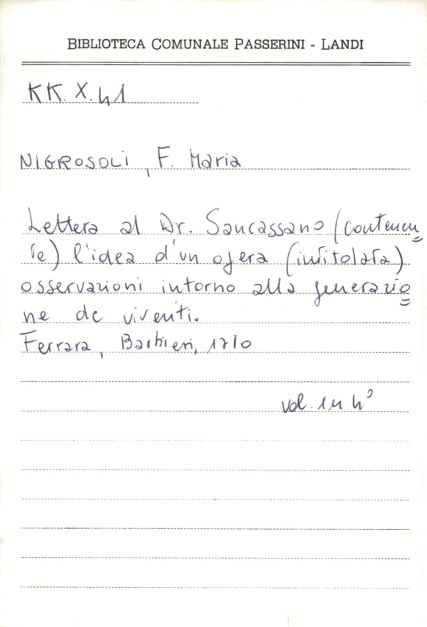 BIBLIOTECA COMUNALE PASSERINI - LANDI
KK. X. 41
NIGROSOLI, F. Maria
Lettera al Dr. Sancassano (contenen=
te) l'idea d'un opera (intitolata)
osservazioni intorno alla generazio=
ne de viventi.
Ferrara, Barbieri, 1710
vol. 1 in 4°